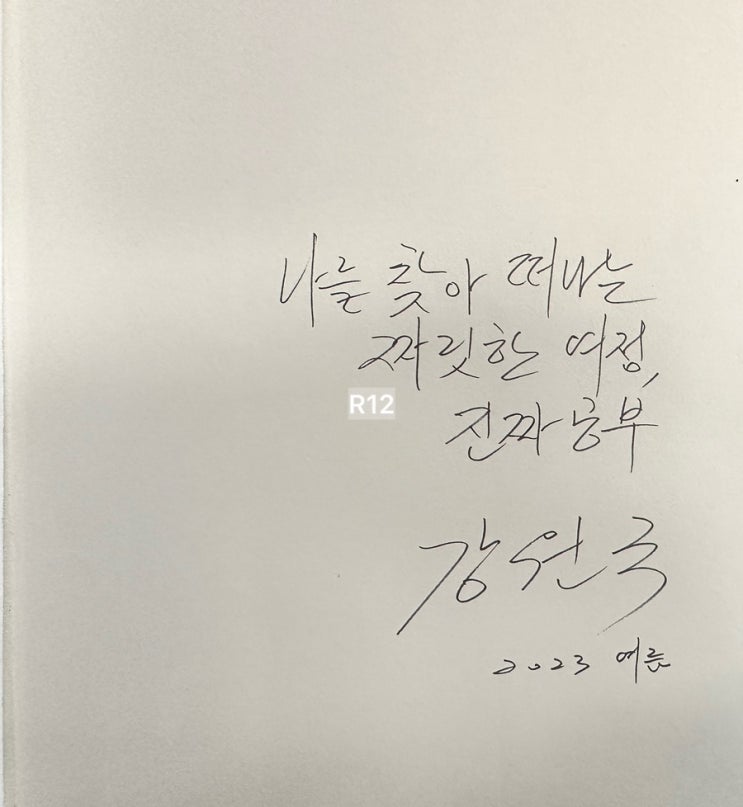 나를 찾아 떠나는
짜릿한 여정,
R12
진짜 공부
강원국
2023 여름